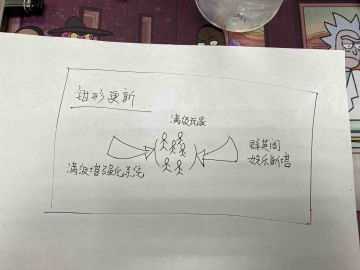 钳形更新
满级玩家
满级增强化系统
群英阁
娱乐新增